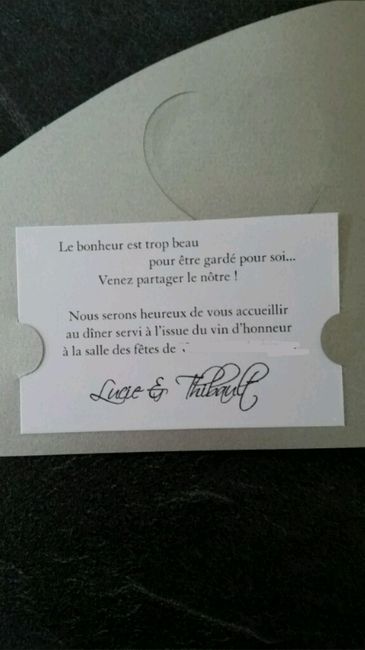 Le bonheur est trop beau
pour être gardé pour soi...
Venez partager le nôtre !
Nous serons heureux de vous accueillir
au dîner servi à l'issue du vin d'honneur
à la salle des fêtes de
Lucie & Thibault